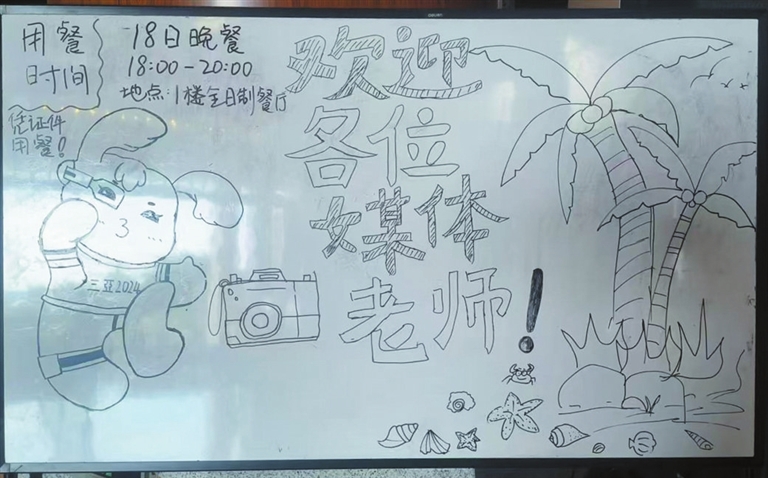 用餐
时间
18日晚餐
18:00-20:00
地点:1楼全日制餐厅
凭证件
用餐!
欢迎
各位
媒体
老师!
三亚2024